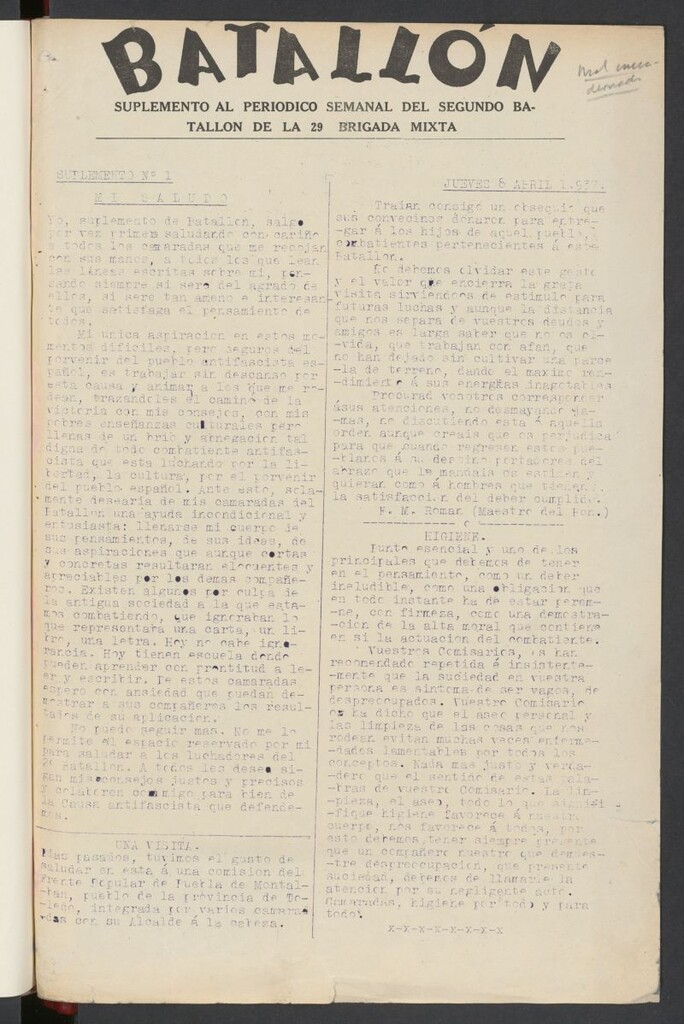 BATALLÓN
SUPLEMENTO AL PERIODICO SEMANAL DEL SEGUNDO BA-
TALLON DE LA 29 BRIGADA MIXTA
SUPLEMENTO Nº 1
MI SALUDO
Yo, suplemento de Batallon, salgo
por vez primera saludando con cariño
a todos los camaradas que me recojan
con sus manos, a todos los que lean
las líneas escritas sobre mi, pen-
sando siempre si sere del agrado de
ellos, si sere tan ameno e interesan-
te que satisfaga el pensamiento de
todos.
Mi unica aspiracion en estos mo-
mentos dificiles, pero seguros del
porvenir del pueblo antifascista es-
pañol, es trabajar sin descanso por
esta causa y animar a los que me ro-
dean, trazandoles el camino de la
victoria con mis consejos, con mis
pobres enseñanzas culturales pero
llenas de un brio y abnegacion tal
digna de todo combatiente antifas-
cista que esta luchando por la li-
bertad, la cultura, por el porvenir
del pueblo español. Ante esto, sola-
mente desearia de mis camaradas del
Batallon una ayuda incondicional y
entusiasta: llenarse mi cuerpo de
sus pensamientos, de sus ideas, de
sus aspiraciones que aunque cortas
y concretas resultaran elocuentes y
apreciables por los demas compañe-
ros. Existen algunos por culpa de
la antigua sociedad a la que esta-
mos combatiendo, que ignoraban lo
que representaba una carta, un li-
bro, una letra. Hoy no cabe igno-
rancia. Hoy tienen escuela donde
pueden aprender con prontitud a le-
er y escribir. De estos camaradas
espero con ansiedad que puedan de-
mostrar a sus compañeros los resul-
tados de su aplicacion.
No puedo seguir mas. No me lo
permite el espacio reservado por mi
para saludar a los luchadores del
2º Batallon. A todos les deseo si-
gan mis consejos justos y precisos
y colaboren conmigo para bien de
la Causa antifascista que defende-
mos.
UNA VISITA.
Dias pasados, tuvimos el gusto de
saludar en esta á una comision del
Frente Popular de Puebla de Montal-
ban, pueblo de la provincia de To-
ledo, integrada por varios camara-
das con su Alcalde á la cabeza.
JUEVES 8 ABRIL 1.937.
Traian consigo un obsequio que
sus convecinos donaron para entre-
gar á los hijos de aquel pueblo,
combatientes pertenecientes á este
Batallon.
No debemos olvidar este gesto
y el valor que encierra la grata
visita sirviendoos de estimulo para
futuras luchas y aunque la distancia
que nos separa de vuestros deudos y
amigos es larga saber que no os ol-
-vida, que trabajan con afan, que
no han dejado sin cultivar una parce-
la de terreno, dando el maximo ren-
-dimiento á sus energias inagotables
Procurad vosotros corresponder
ásus atenciones, no desmayando ja-
-mas, no discutiendo esta ó aquella
orden aunque creais que os perjudica
para que cuando regresen estos pue-
-blanos á su destino portadores del
abrazo que les mandais os estimen y
quieran como á hombres que tienen
la satisfaccion del deber cumplido.
F. M. Roman (Maestro del Bon.)
o
HIGIENE.
Punto esencial y uno de los
principales que debemos de tener
en el pensamiento, como un deber
ineludible, como una obligacion que
en todo instante ha de estar peren-
-ne, con firmeza, como una demostra-
-cion de la alta moral que contiene
en si la actuacion del combatiente.
Vuestros Comisarios, os han
recomendado repetida é insistente-
-mente que la suciedad en vuestra
persona es sintoma de ser vagos, de
despreocupados. Vuestro Comisario
os ha dicho que el aseo personal y
las limpieza de las cosas que nos
rodean evitan muchas veces enferme-
-dades lamentables por todos los
conceptos. Nada mas justo y verda-
-dero que el sentido de estas pala-
-bras de vuestro Comisario. La lim-
-pieza, el aseo, todo lo que signifi-
-fique higiene favorece á nuestro
cuerpo, nos favorece á todos, por
esto debemos tener siempre presente
que un compañero nuestro que demues-
-tre despreocupacion, que presente
suciedad, debemos de llamarle la
atencion por su negligente acto.
Camaradas, higiene por todo y para
todo!
x-x-x-x-x-x-x-x